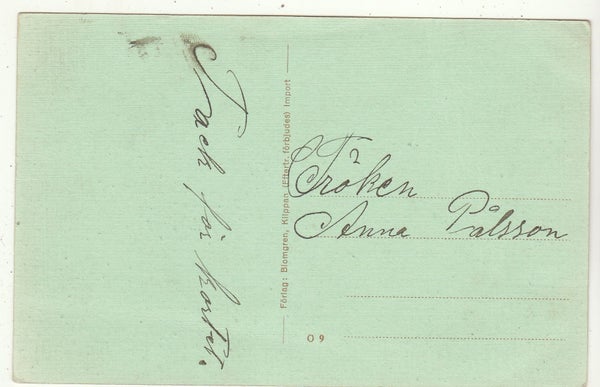 Tack för kortet.
Förlag: Blomgren, Klippan (Eftertr. förbjudes) Import
Fröken
Anna Pålsson
O 9